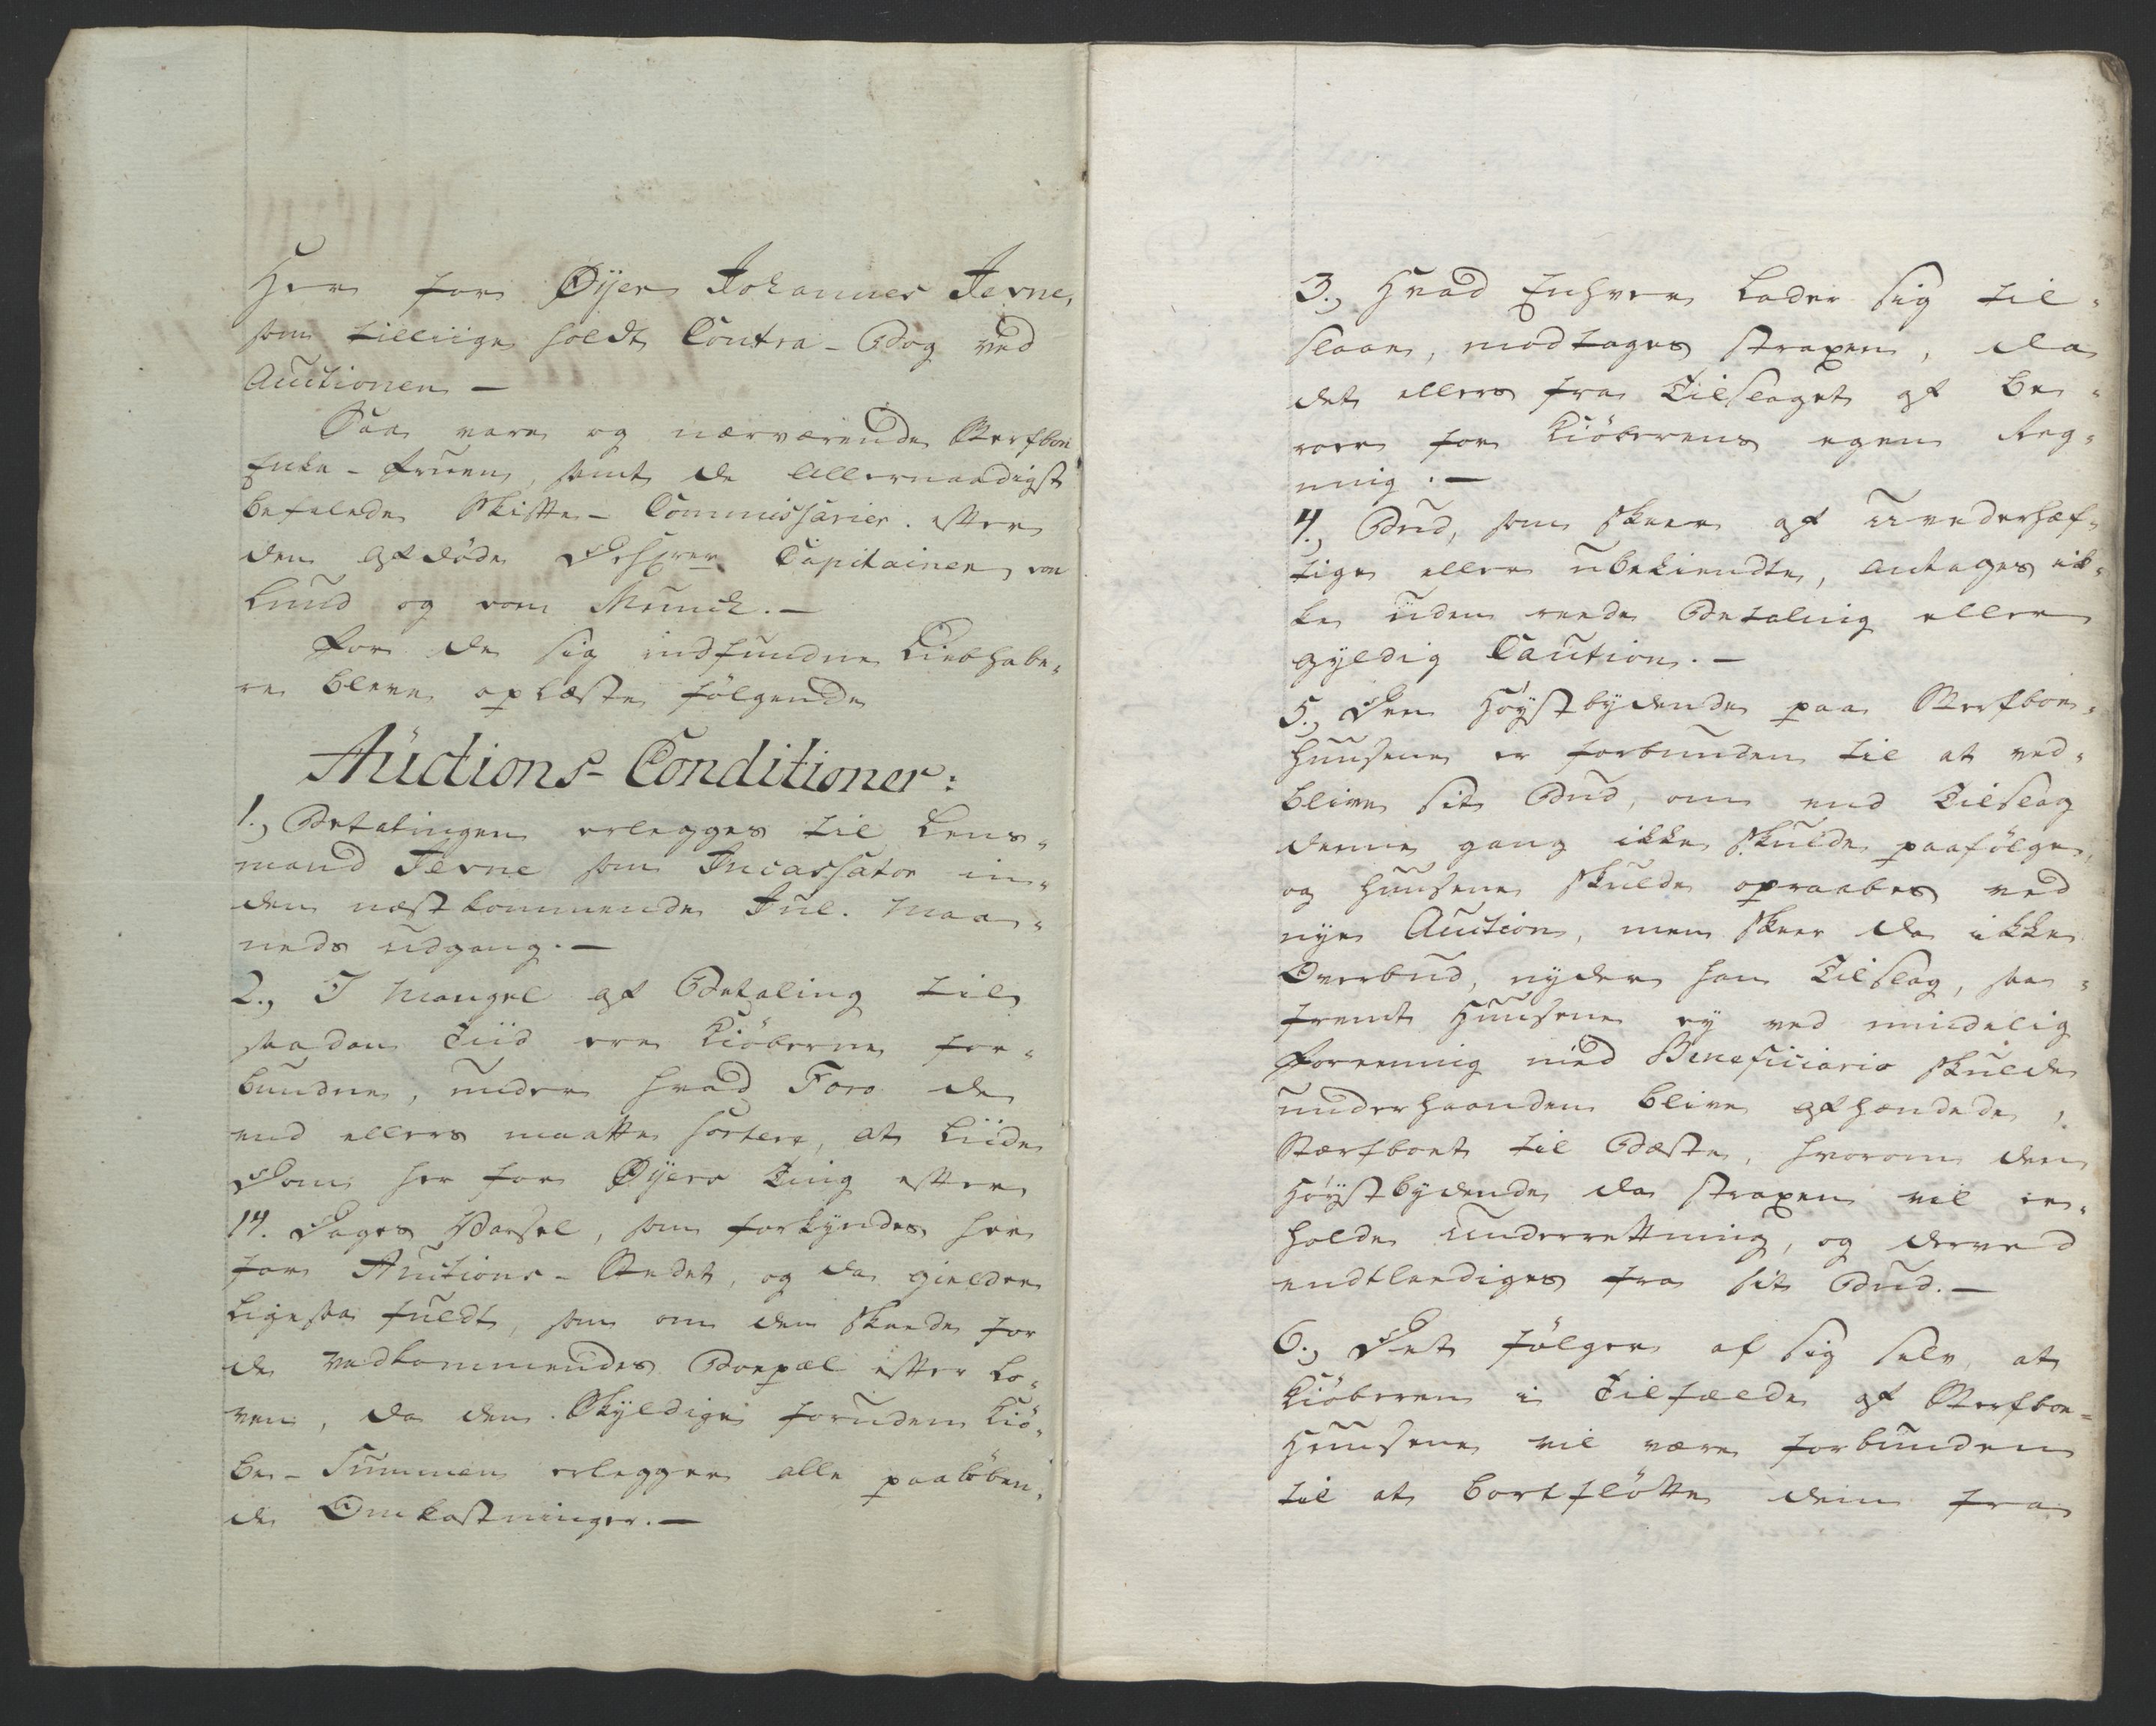 Her for Øÿer Johannes Jevne,
som tilliige holdt Contra-Bog ved
Auctionen —
Saa vare og nærværende Sterfboe
Enke-Fruen, samt de Allernaadigst
befalede Skifte-Commissarier efter
den afdöde Capitainer von
Lund og von Munck. —
For de sig indfundne Liebhabe-
re bleve oplæste fölgende
Auctions-Conditioner:
1., Betalingen erlegges til Lens-
mand Jevne som Incassator in-
den næstkommende Jul. Maa-
neds udgang. —
2., I Mangel af Betaling til
saadan Tiid ere Kiöberne for-
bundne, under hvad Foro de
end ellers maatte sortere, at liide
Dom her for Øÿers Ting efter
14. Dages Varsel, som forkyndes her
for Auctions-Stedet, og da gielder
ligesaa fuldt, som om den skeede for
de Vedkommendes Boepæl efter Lo-
ven, da den Skyldige foruden Kiö-
be-Summen erlegger alle paalöben-
de Omkostninger. —
3., Hvad Enhver lader sig til-
slaae, modtages straxen, da
det ellers fra Tilslaget af be-
roer for Kiöberens egen Reg-
ning. —
4., Bud, som skeer af uvederhæf-
tige eller ubekiendte, antages ik-
ke uden reede Betaling eller
gyldig Caution. —
5., Den Höystbydende paa Sterfboe-
huusene er forbunden til at ved-
blive sit Bud, om end Tilslag
denne gang ikke skulde paafölge,
og Huusene skulde opraabes ved
nye Auction, men skeer da ikke
Overbud, nyder han Tilslag, saa-
fremt Huusene ey ved mindelig
Foreening med Beneficiario skulde
underhaanden blive afhændede,
Stærfboet til Bæste, hvorom den
Höystbydende da straxen vil er-
holde Underrettning, og derved
endtlædiges fra sit Bud. —
6., Det fölger af sig selv, at
Kiöberen i Tilfælde af Sterfboe-
Huusene vil være forbunden
til at bortflötte dem fra